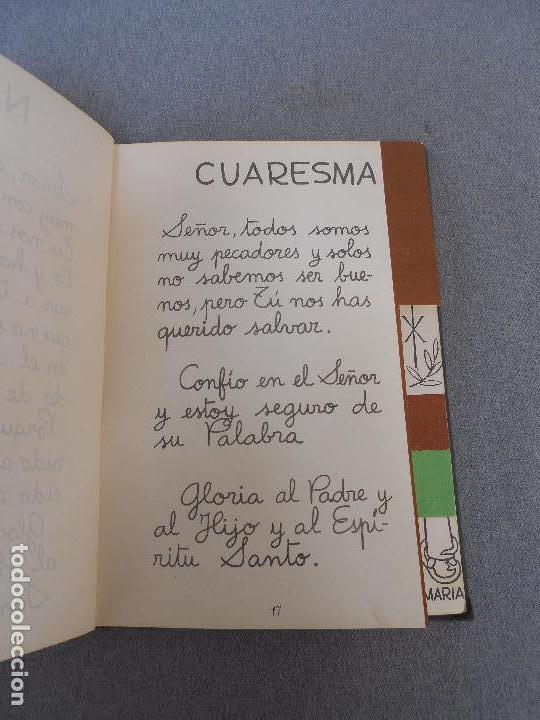 N
Señor,
muy con
CUARESMA
Señor, todos somos
muy pecadores y solos
no sabemos ser bue-
nos, pero Tú nos has
querido salvar.
Confío en el Señor
y estoy seguro de
su Palabra
Gloria al Padre y
al Hijo y al Espí-
ritu Santo.
17
MARIA
todocoleccion